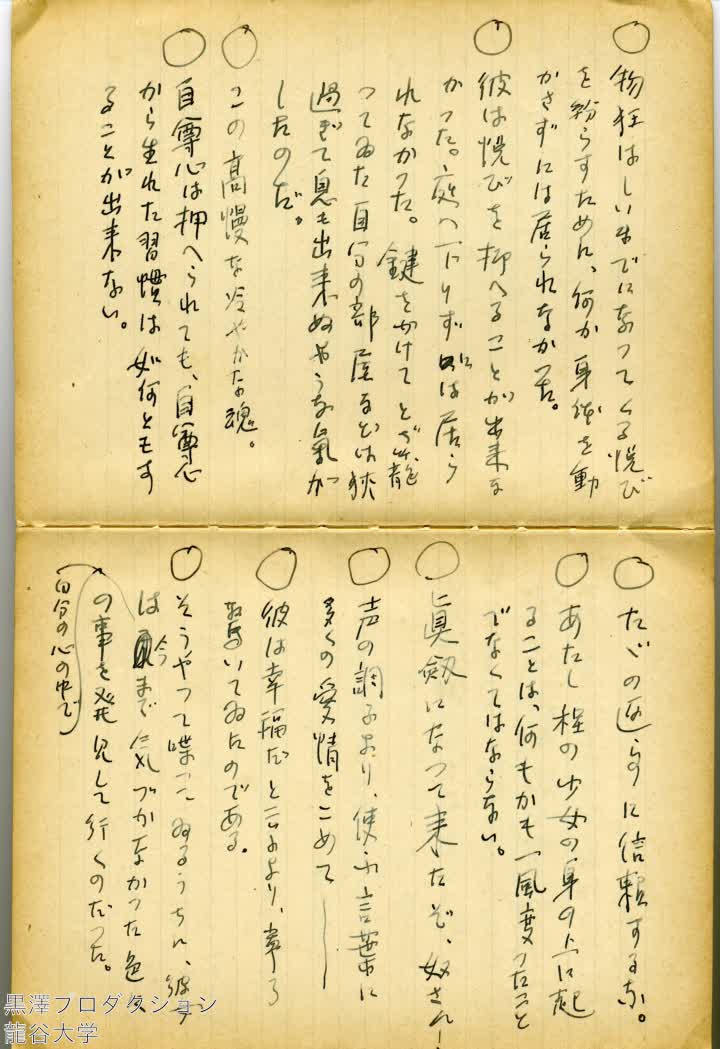 ○ 物狂はしいまでになつてくる悦び
を紛らすために、何か身体を動
かさずには居られなかつた。
○ 彼は悦びを抑へることが出来な
かつた。庭へ下りずには居ら
れなかつた。鍵をかけてとぢ籠
つてゐた自分の部屋などは狭
過ぎて息も出来ぬやうな気が
したのだ。
○ この高慢な冷やかな魂。
○ 自尊心は押へられても、自尊心
から生れた習慣は如何ともす
ることが出来ない。
○ たゞの に信頼するな。
○ あたし程の少女の身の上に起
ることは、何もかも一風変つたこと
でなくてはならない。
○ 眞剣になつて来たぞ、奴さん
○ 声の調子より、使ふ言葉に
多くの愛情をこめて――
○ 彼は幸福だと云ふより、寧ろ
驚いてゐたのである。
○ そうやつて喋つてゐるうちに、彼女
は今まで気づかなかつた色々
の事を発見して行くのだつた。
(自分の心の中で)
黒澤プロダクション
龍谷大学